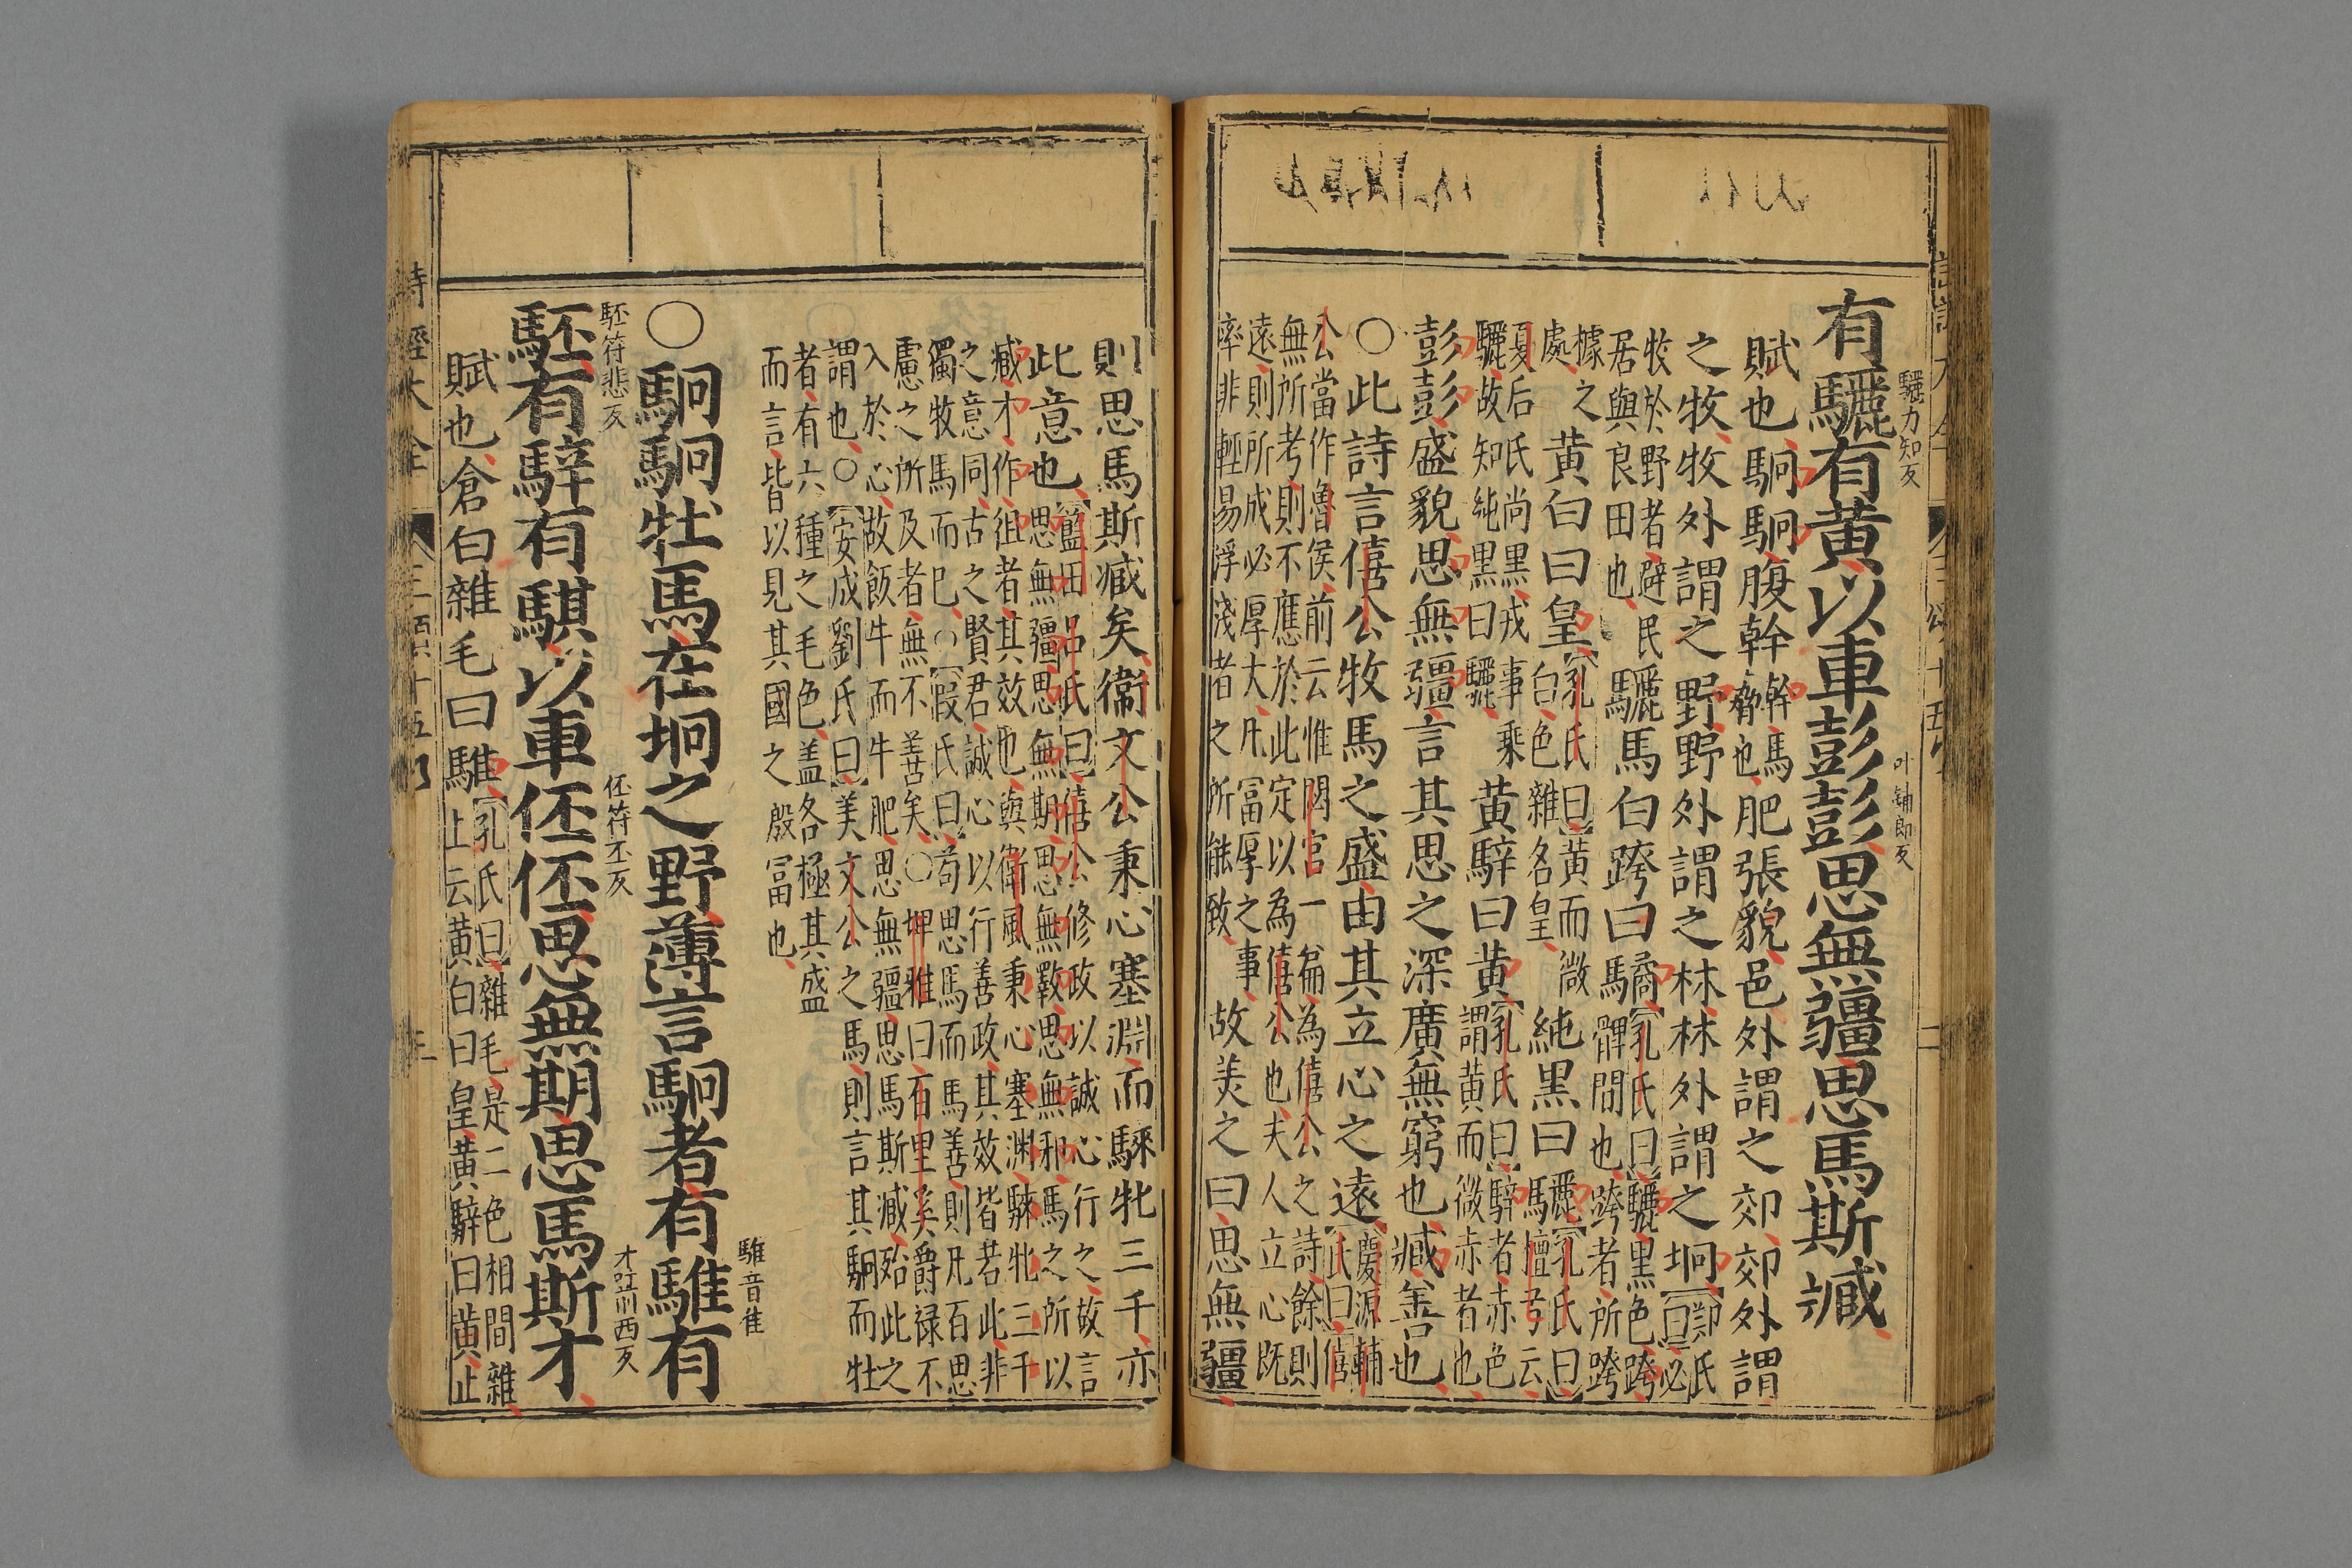 驪力知反
叶鋪郎反
有驪有黃以車彭彭思無疆思馬斯臧
賦也駉駉腹幹
幹馬
脅也
肥張貌邑外謂之郊郊外謂
之牧牧外謂之野野外謂之林林外謂之坰
鄭氏
曰必
牧於野者避民
居與良田也
驪馬白跨曰驈
孔氏曰驪黑色跨
髀間也跨者所跨
據之
處
黃白曰皇
孔氏曰黃而微
白色雜名皇
純黑曰驪
孔氏曰
檀弓云
夏后氏尚黑戎事乘
驪故知純黑曰驪
黃騂曰黃
孔氏曰騂者赤色
謂黃而微赤者也
彭彭盛貌思無疆言其思之深廣無窮也臧善也
○此詩言僖公牧馬之盛由其立心之遠
慶源輔
氏曰僖
公當作魯侯前云惟閟宮一篇為僖公之詩餘則
無所考則不應於此定以為僖公也夫人立心既
遠則所成必厚大凡富厚之事
率非輕易浮淺者之所能致
故美之曰思無疆
則思馬斯臧矣衞文公秉心塞淵而騋牝三千亦
此意也
藍田呂氏曰僖公修政以誠心行之故言
思無疆思無期思無斁思無邪馬之所以
臧才作徂者其效也與衛風秉心塞淵騋牝三千
之意同古之賢君誠心以行善政其效皆若此非
獨牧馬而已○叚氏曰苟思馬而馬善則凡百思
慮之所及者無不善矣○埤雅曰百里奚爵禄不
入於心故飯牛而牛肥思無疆思馬斯臧殆此之
謂也○安成劉氏曰美文公之馬則言其駉而牡
者有六種之毛色盖各極其盛
而言皆以見其國之殷富也
騅音隹
○駉駉牡馬在坰之野薄言駉者有騅有
駓符悲反
伾符丕反
駓有騂有騏以車伾伾思無期思馬斯才
賦也倉白雜毛曰騅
孔氏曰雜毛是二色相間雜
上云黃白曰皇黃騂曰黃止
詩經大全